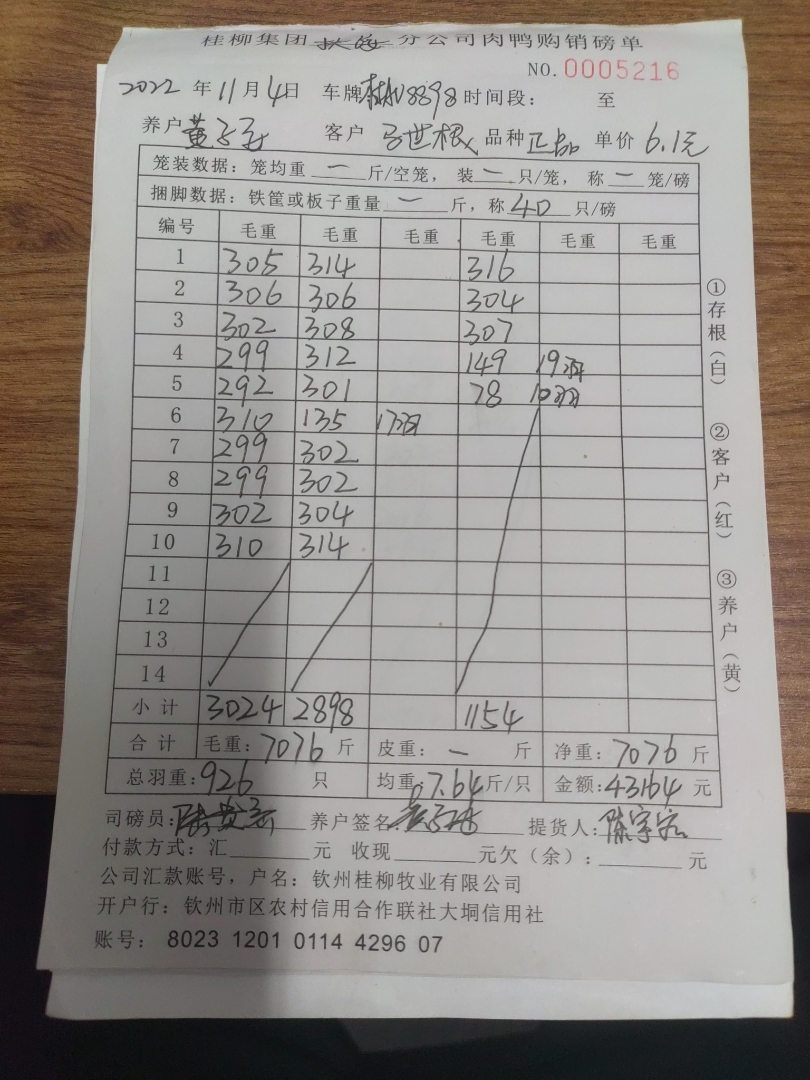 桂柳集团 分公司肉鸭购销磅单
NO.0005216
2022 年 11 月 4 日 车牌 8898 时间段： 至
养户 黄 客户 马世根 品种 正品 单价 6.1元
笼装数据：笼均重 一 斤/空笼，装 一 只/笼，称 一 笼/磅
捆脚数据：铁筐或板子重量 一 斤，称 40 只/磅
编号 毛重 毛重 毛重 毛重 毛重 毛重
1 305 314 316
2 306 306 304
3 302 308 307
4 299 312 149 19羽
5 292 301 78 10羽
6 310 135 17羽
7 299 302
8 299 302
9 302 304
10 310 314
11
12
13
14
小计 3024 2898 1154
合计 毛重：7076 斤 皮重：一 斤 净重：7076 斤
总羽重：926 只 均重：7.64 斤/只 金额：43164 元
司磅员： 养户签名： 提货人：陈
付款方式：汇 元 收现 元欠（余）： 元
公司汇款账号，户名：钦州桂柳牧业有限公司
开户行：钦州市区农村信用合作联社大垌信用社
账号： 8023 1201 0114 4296 07
①存根（白）
②客户（红）
③养户（黄）